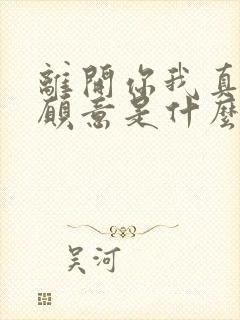 離開你我真
願意是什麼
吴河